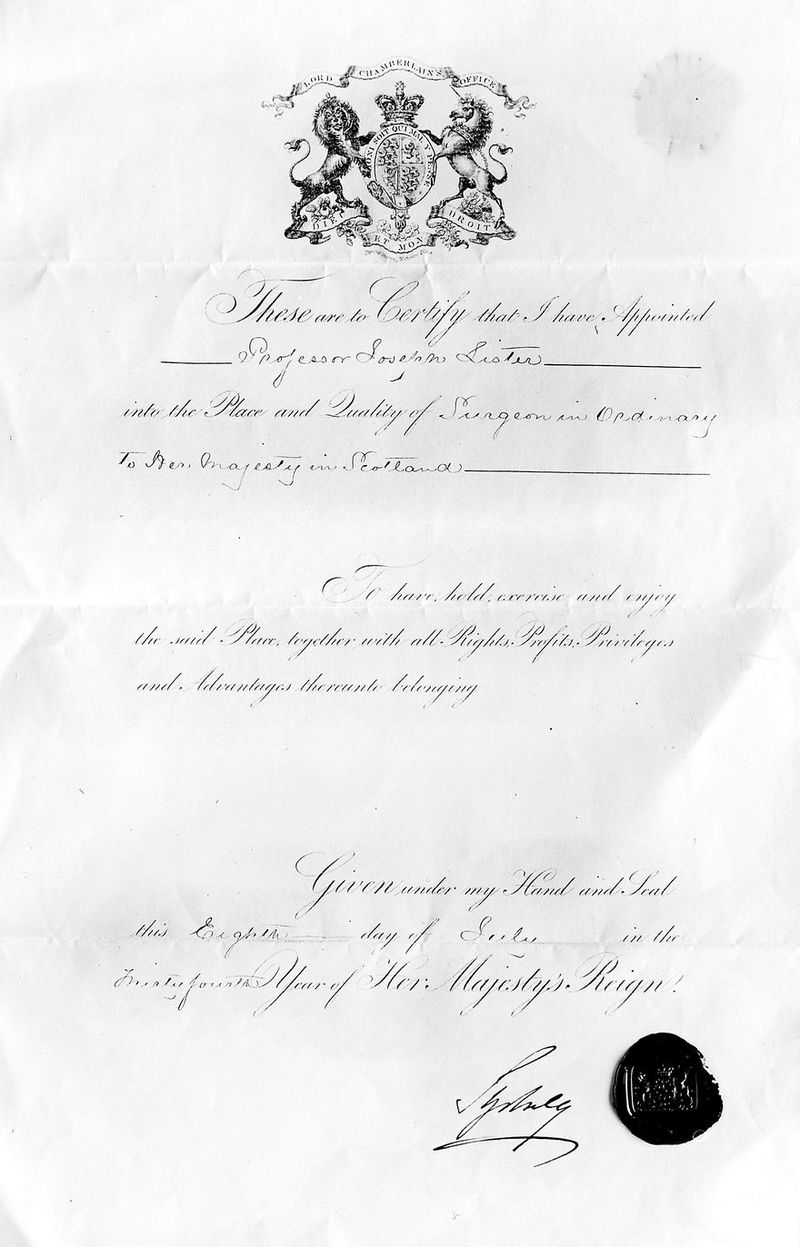 LORD CHAMBERLAIN'S OFFICE
HONI SOIT QUI MAL Y PENSE
DIEU ET MON DROIT
These are to Certify that I have Appointed
Professor Joseph Lister
into the Place and Quality of Surgeon in Ordinary
To Her Majesty in Scotland
To have, hold, exercise and enjoy
the said Place, together with all Rights, Profits, Privileges
and Advantages thereunto belonging
Given under my Hand and Seal
this Eighth day of July in the
Thirty fourth Year of Her Majesty's Reign.
Sydney